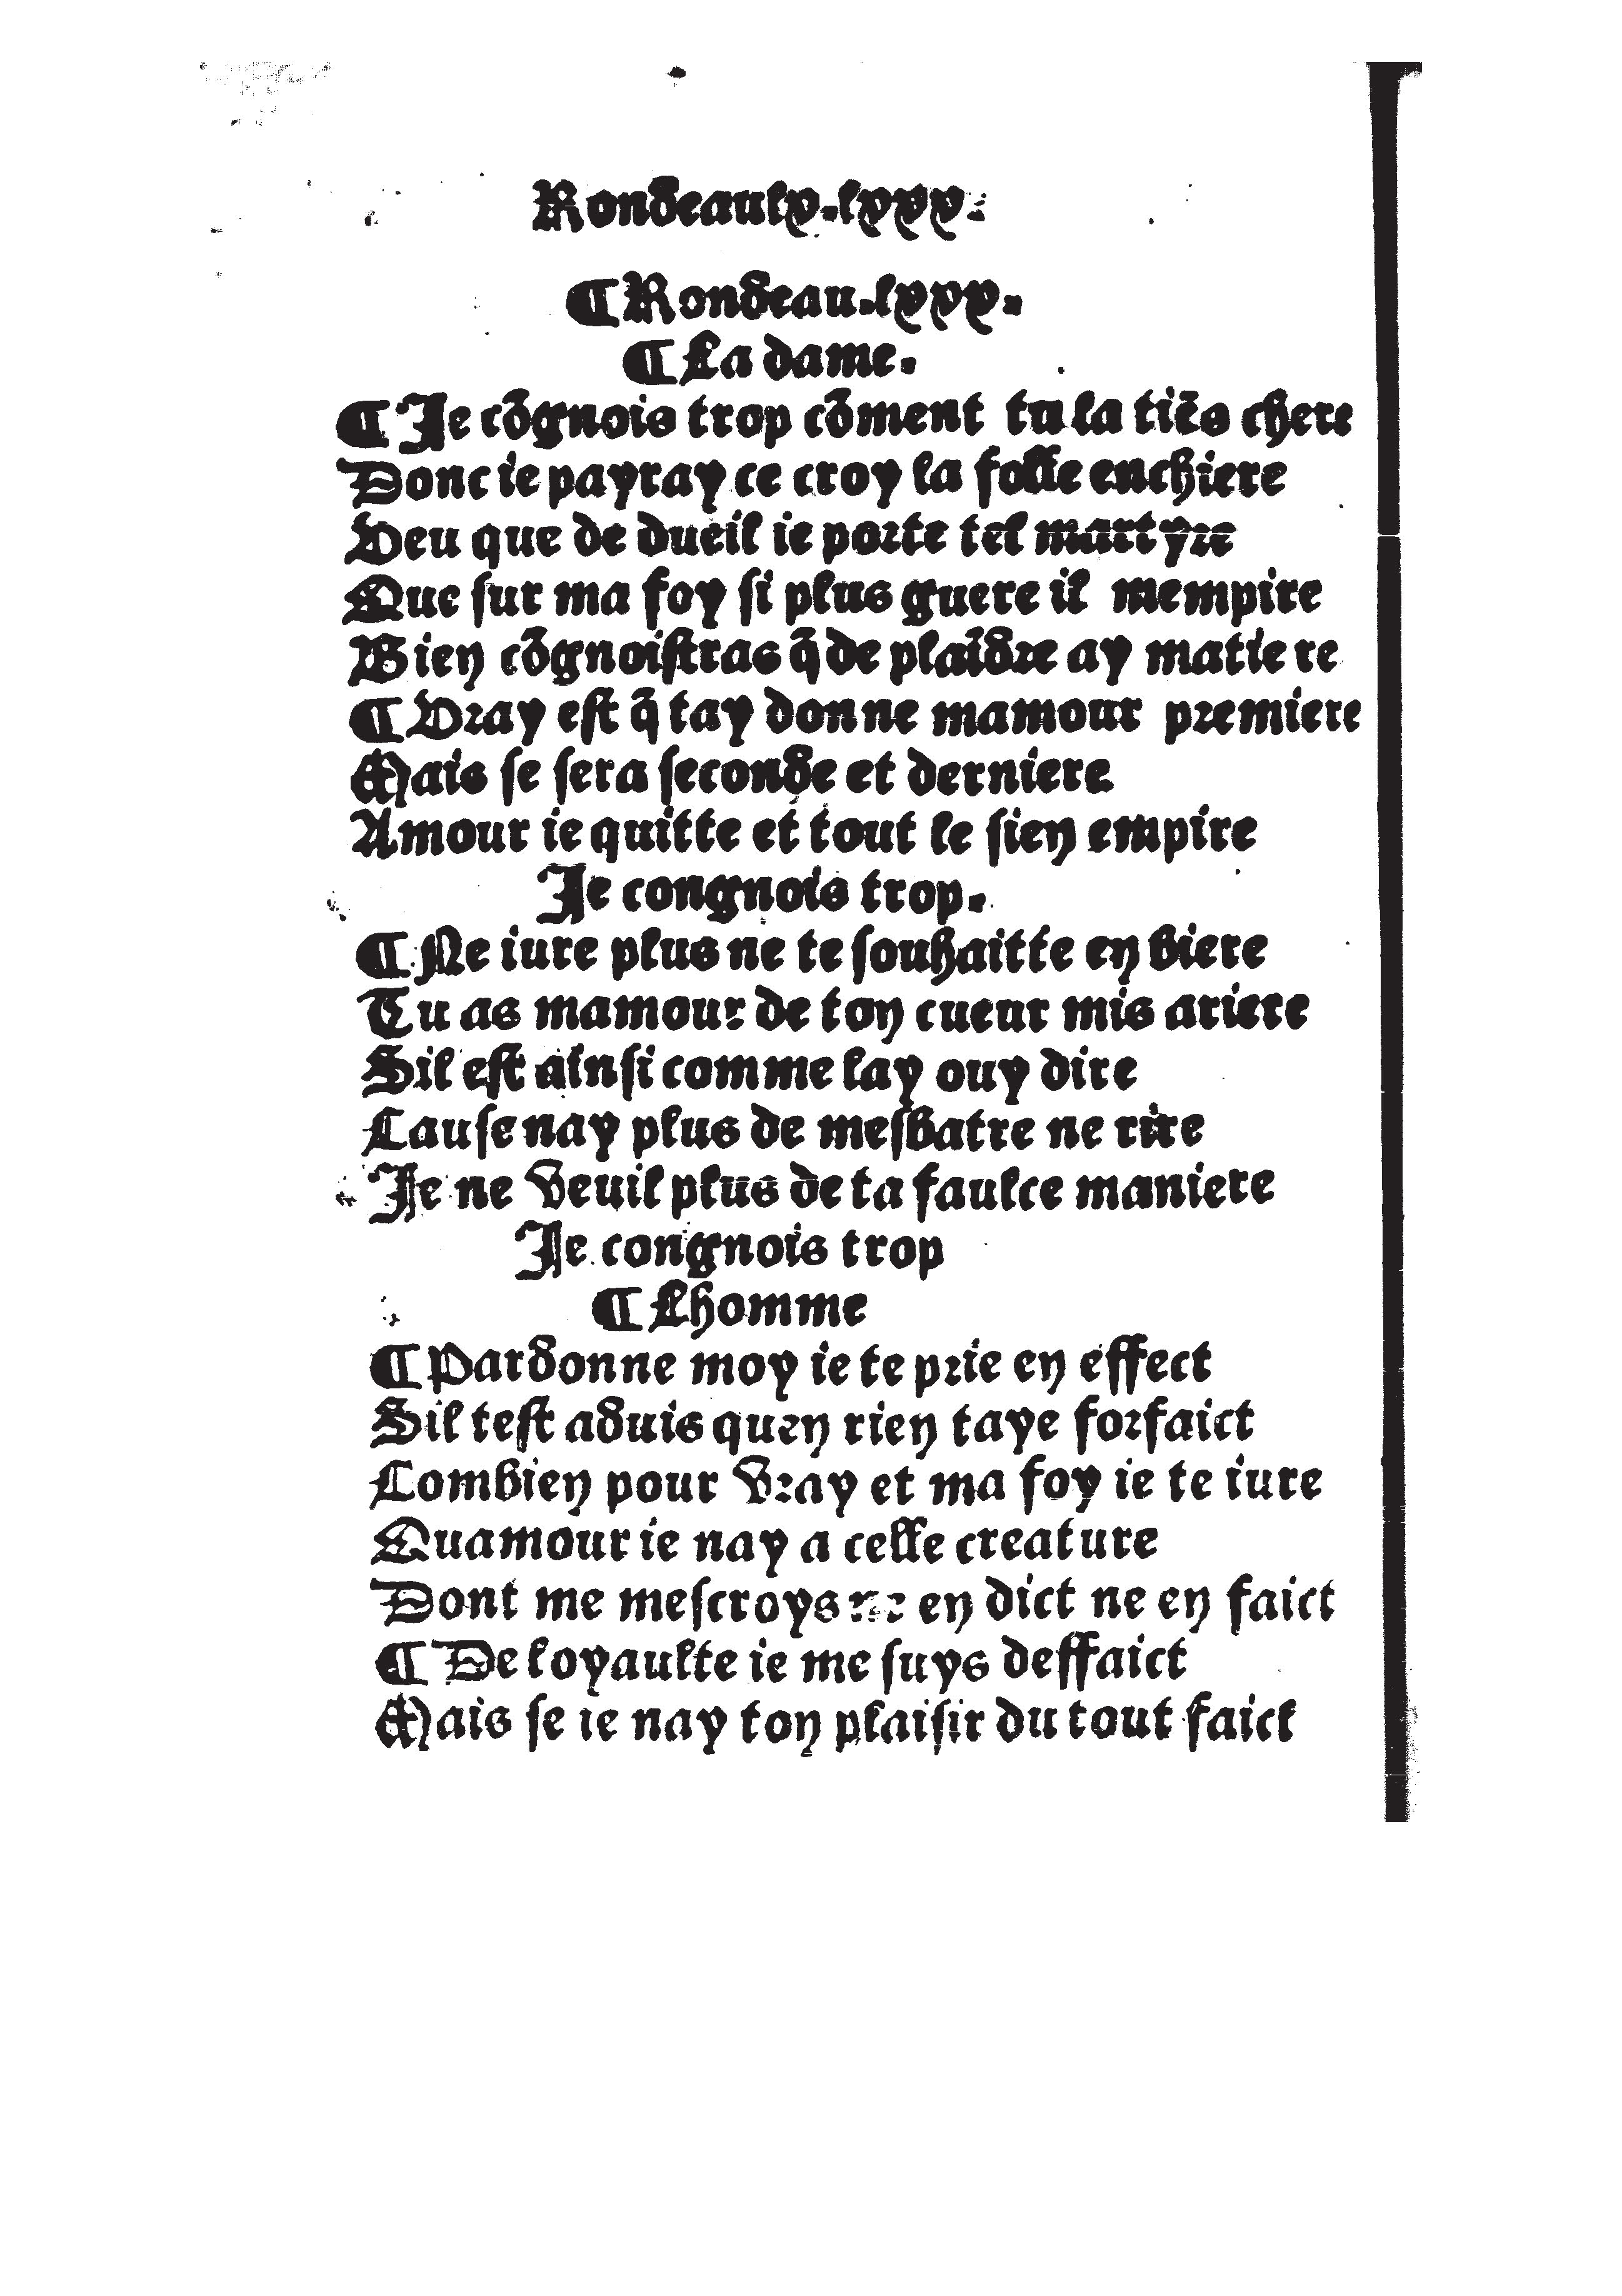 Rondeaulx.lxxx.
¶Rondeau.lxxx.
¶La dame.
¶Je cõgnois trop cõment tu la tiẽs chere
Donc ie payray ce croy la folle enchiere
Veu que de dueil ie porte tel martyre
Que sur ma foy si plus guere il mempire
Bien cõgnoistras q̃ de plaĩdre ay matiere
¶Vray est q̃ tay donne mamour premiere
Mais se sera seconde et derniere
Amour ie quitte et tout le sien empire
Je congnois trop.
¶Ne iure plus ne te souhaitte en biere
Tu as mamour de ton cueur mis ariere
Sil est ainsi comme lay ouy dire
Cause nay plus de mesbatre ne rire
Je ne veuil plus de ta faulce maniere
Je congnois trop
¶Lhomme
¶Pardonne moy ie te prie en effect
Sil test aduis quen rien taye forfaict
Combien pour vray et ma foy ie te iure
Quamour ie nay a celle creature
Dont me mescroys ne en dict ne en faict
¶De loyaulte ie me suys deffaict
Mais se ie nay ton plaisir du tout faict